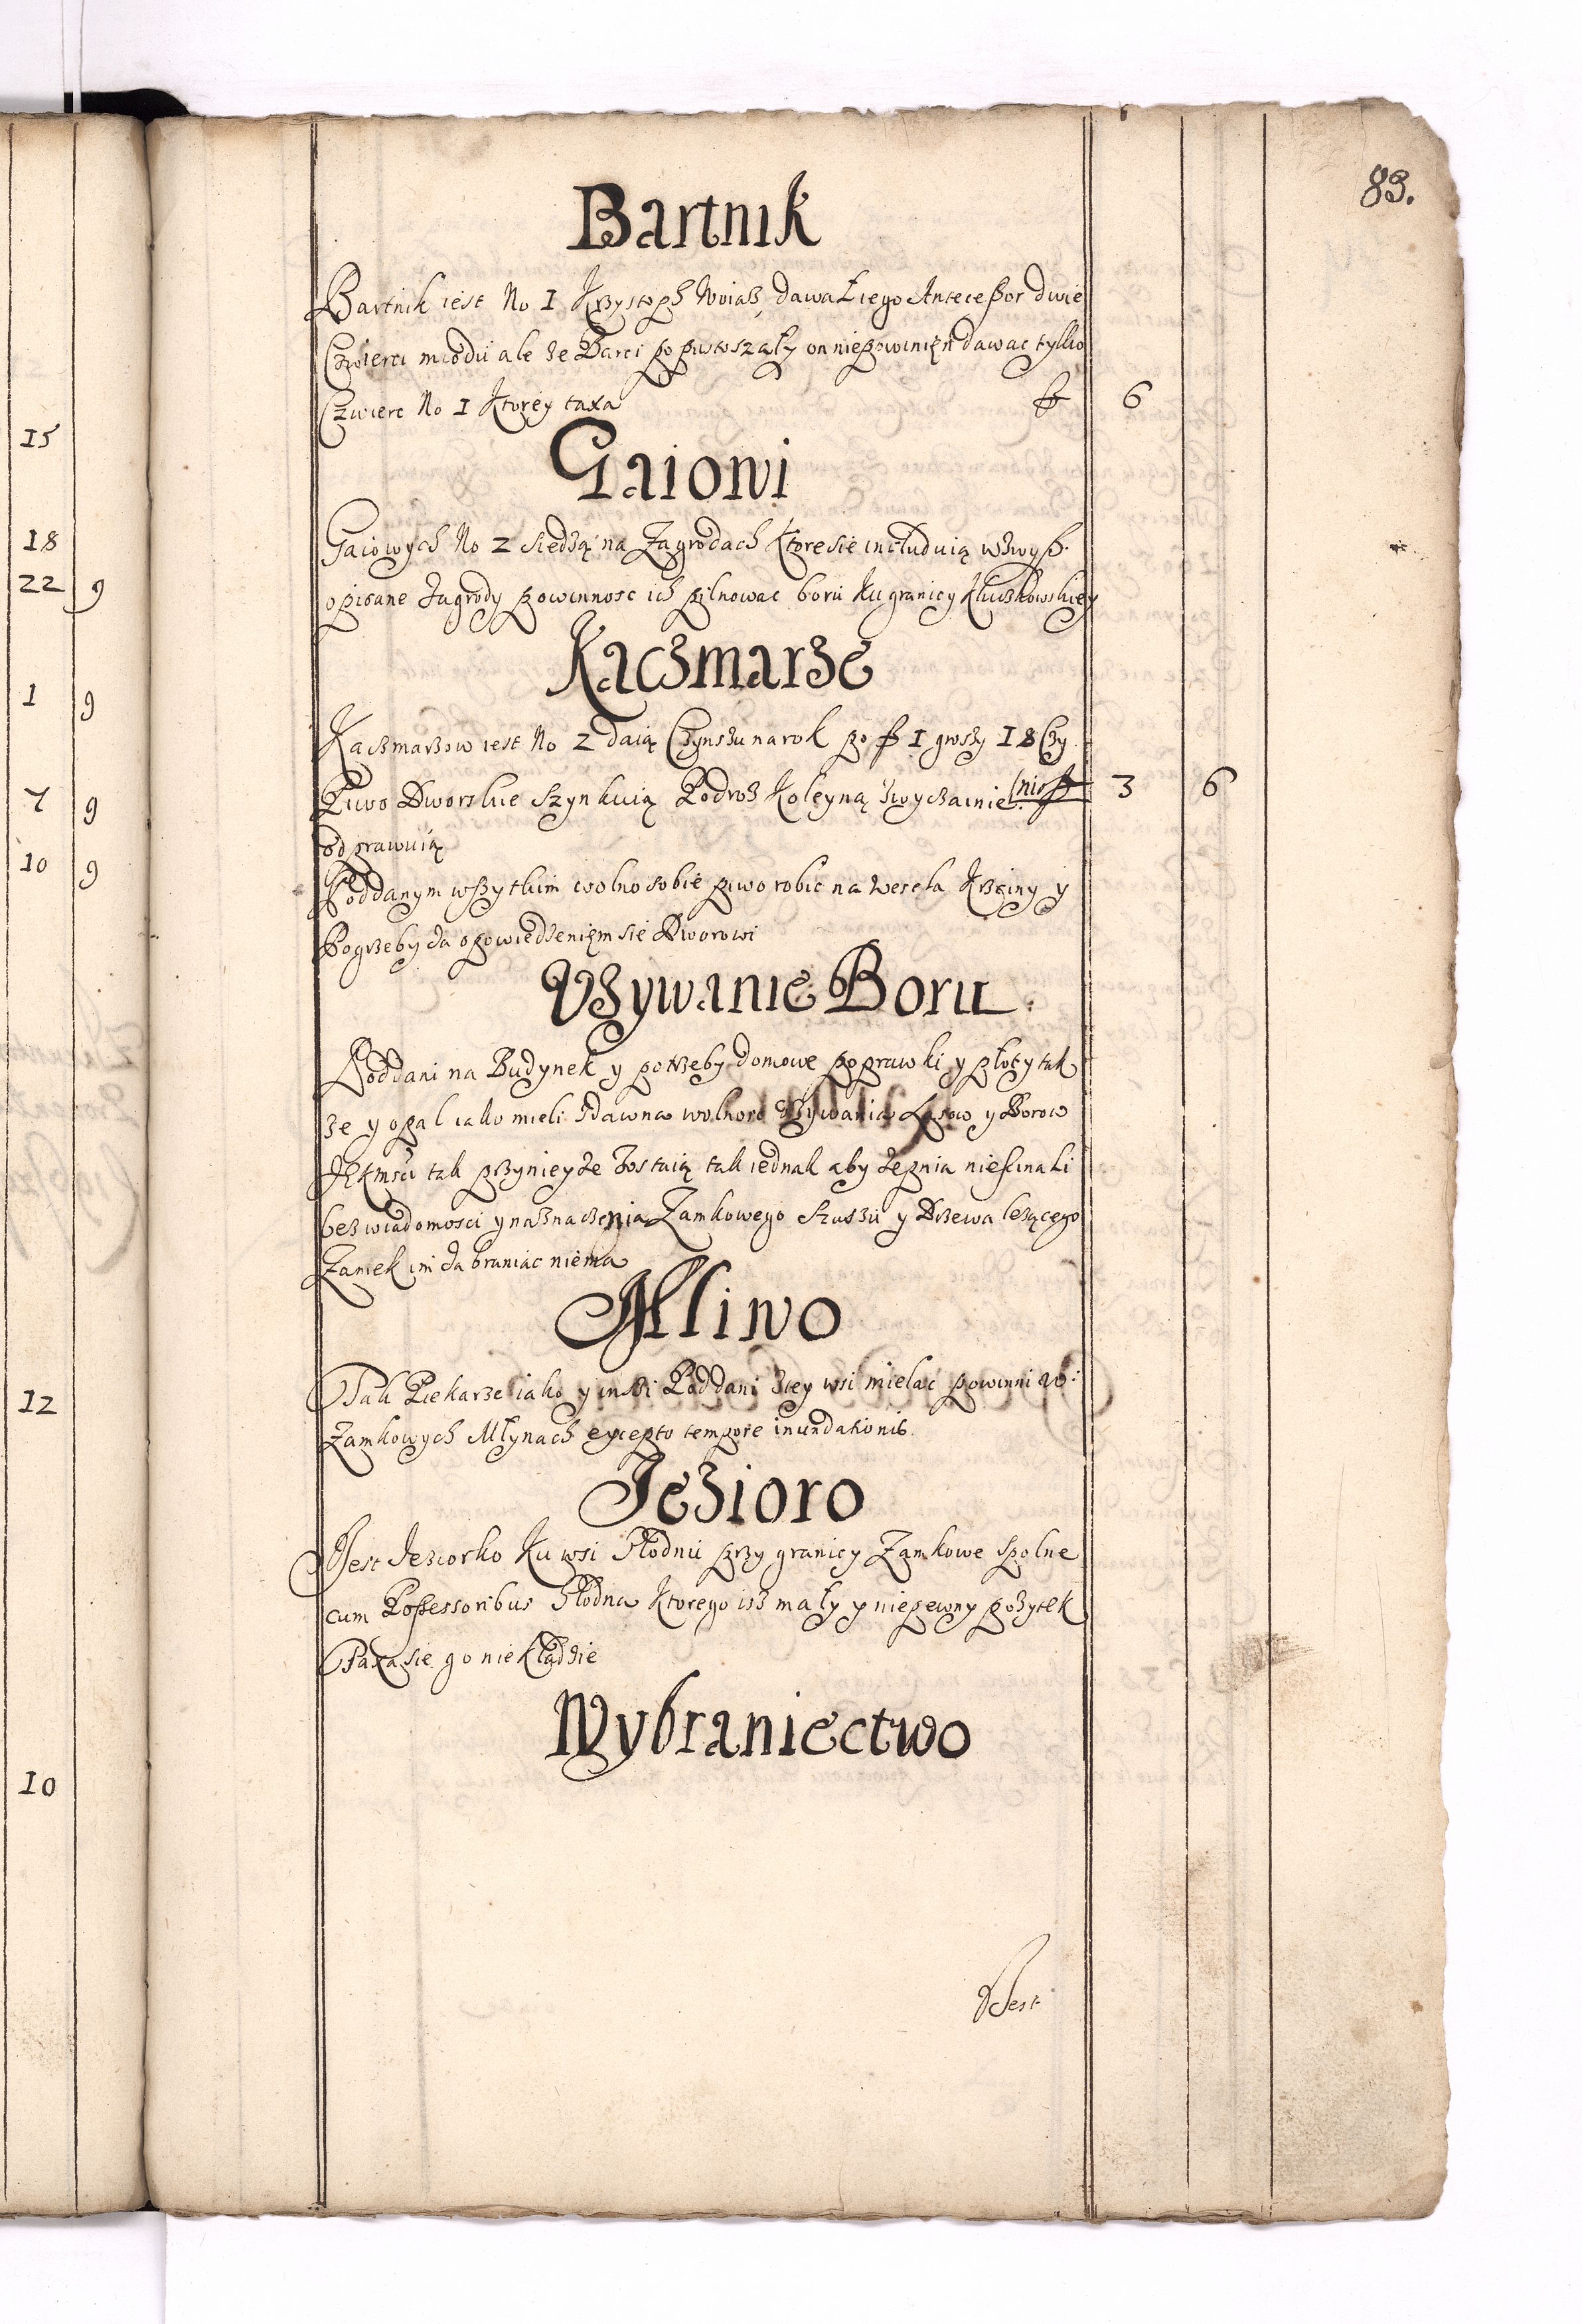 83.
Bartnik
Bartnik iest No 1 Krzysztoph Woiaz dawał iego Antecessor dwie
Czwierci miodu ale ze Barci popustoszały on niepowinięn dawac tylko
Czwierc No 1 Ktorey taxa fl 6
Gaiowi
Gaiowych No 2 siedzą na Zagrodach Ktore sie includuią wzwysz
opisane Zagrody powinnosc ich pilnowac boru ku granicy Kluczkowskiey
Kaczmarze
Kaczmarzow iest No 2 daią Czynszu na rok po fl 1 groszy 18 Czy
Piwo Dworskie szynkuią Podroz Koleyną zwyczainie (ni fl 3 6
odprawuią
Poddanym wszytkim wolno sobie piwo robic na wesela Krzciny y
Pogrzeby za opowiedzenięm sie Dworowi
Vzywanie Boru
Poddani na Budynek y potrzeby domowe poprawki y płoty tak
ze y opal iako mieli zdawna wolnosc Vzywania Lasow y Borow
JKmsci tak przy nieyze zostaią tak iednak aby zepnia niescinali
bez wiadomosci y naznaczenia Zamkowego Szuszu y Drzewa lezącego
Zamek im zabraniac niema
Mliwo
Tak Piekarze iako y inszi Poddani ztey wsi mielac powinni w:
Zamkowych Młynach excepto tempore inundationis
Jezioro
Jest Jeziorko Ku wsi Płodnu przy granicy Zamkowe spolne
cum Possessoribus Płodna Ktorego isz mały y niepewny pozytek
Taxa sie go nie Kładzie
Wybraniectwo
Jest
15
18
22 9
1 9
7 9
10 9
12
10